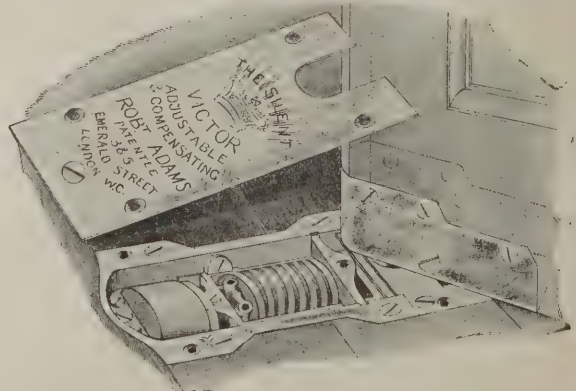 VICTOR
ADJUSTABLE
& COMPENSATING
ROBT ADAMS
PATENTEE
3 & 5
EMERALD STREET
LONDON W.C.